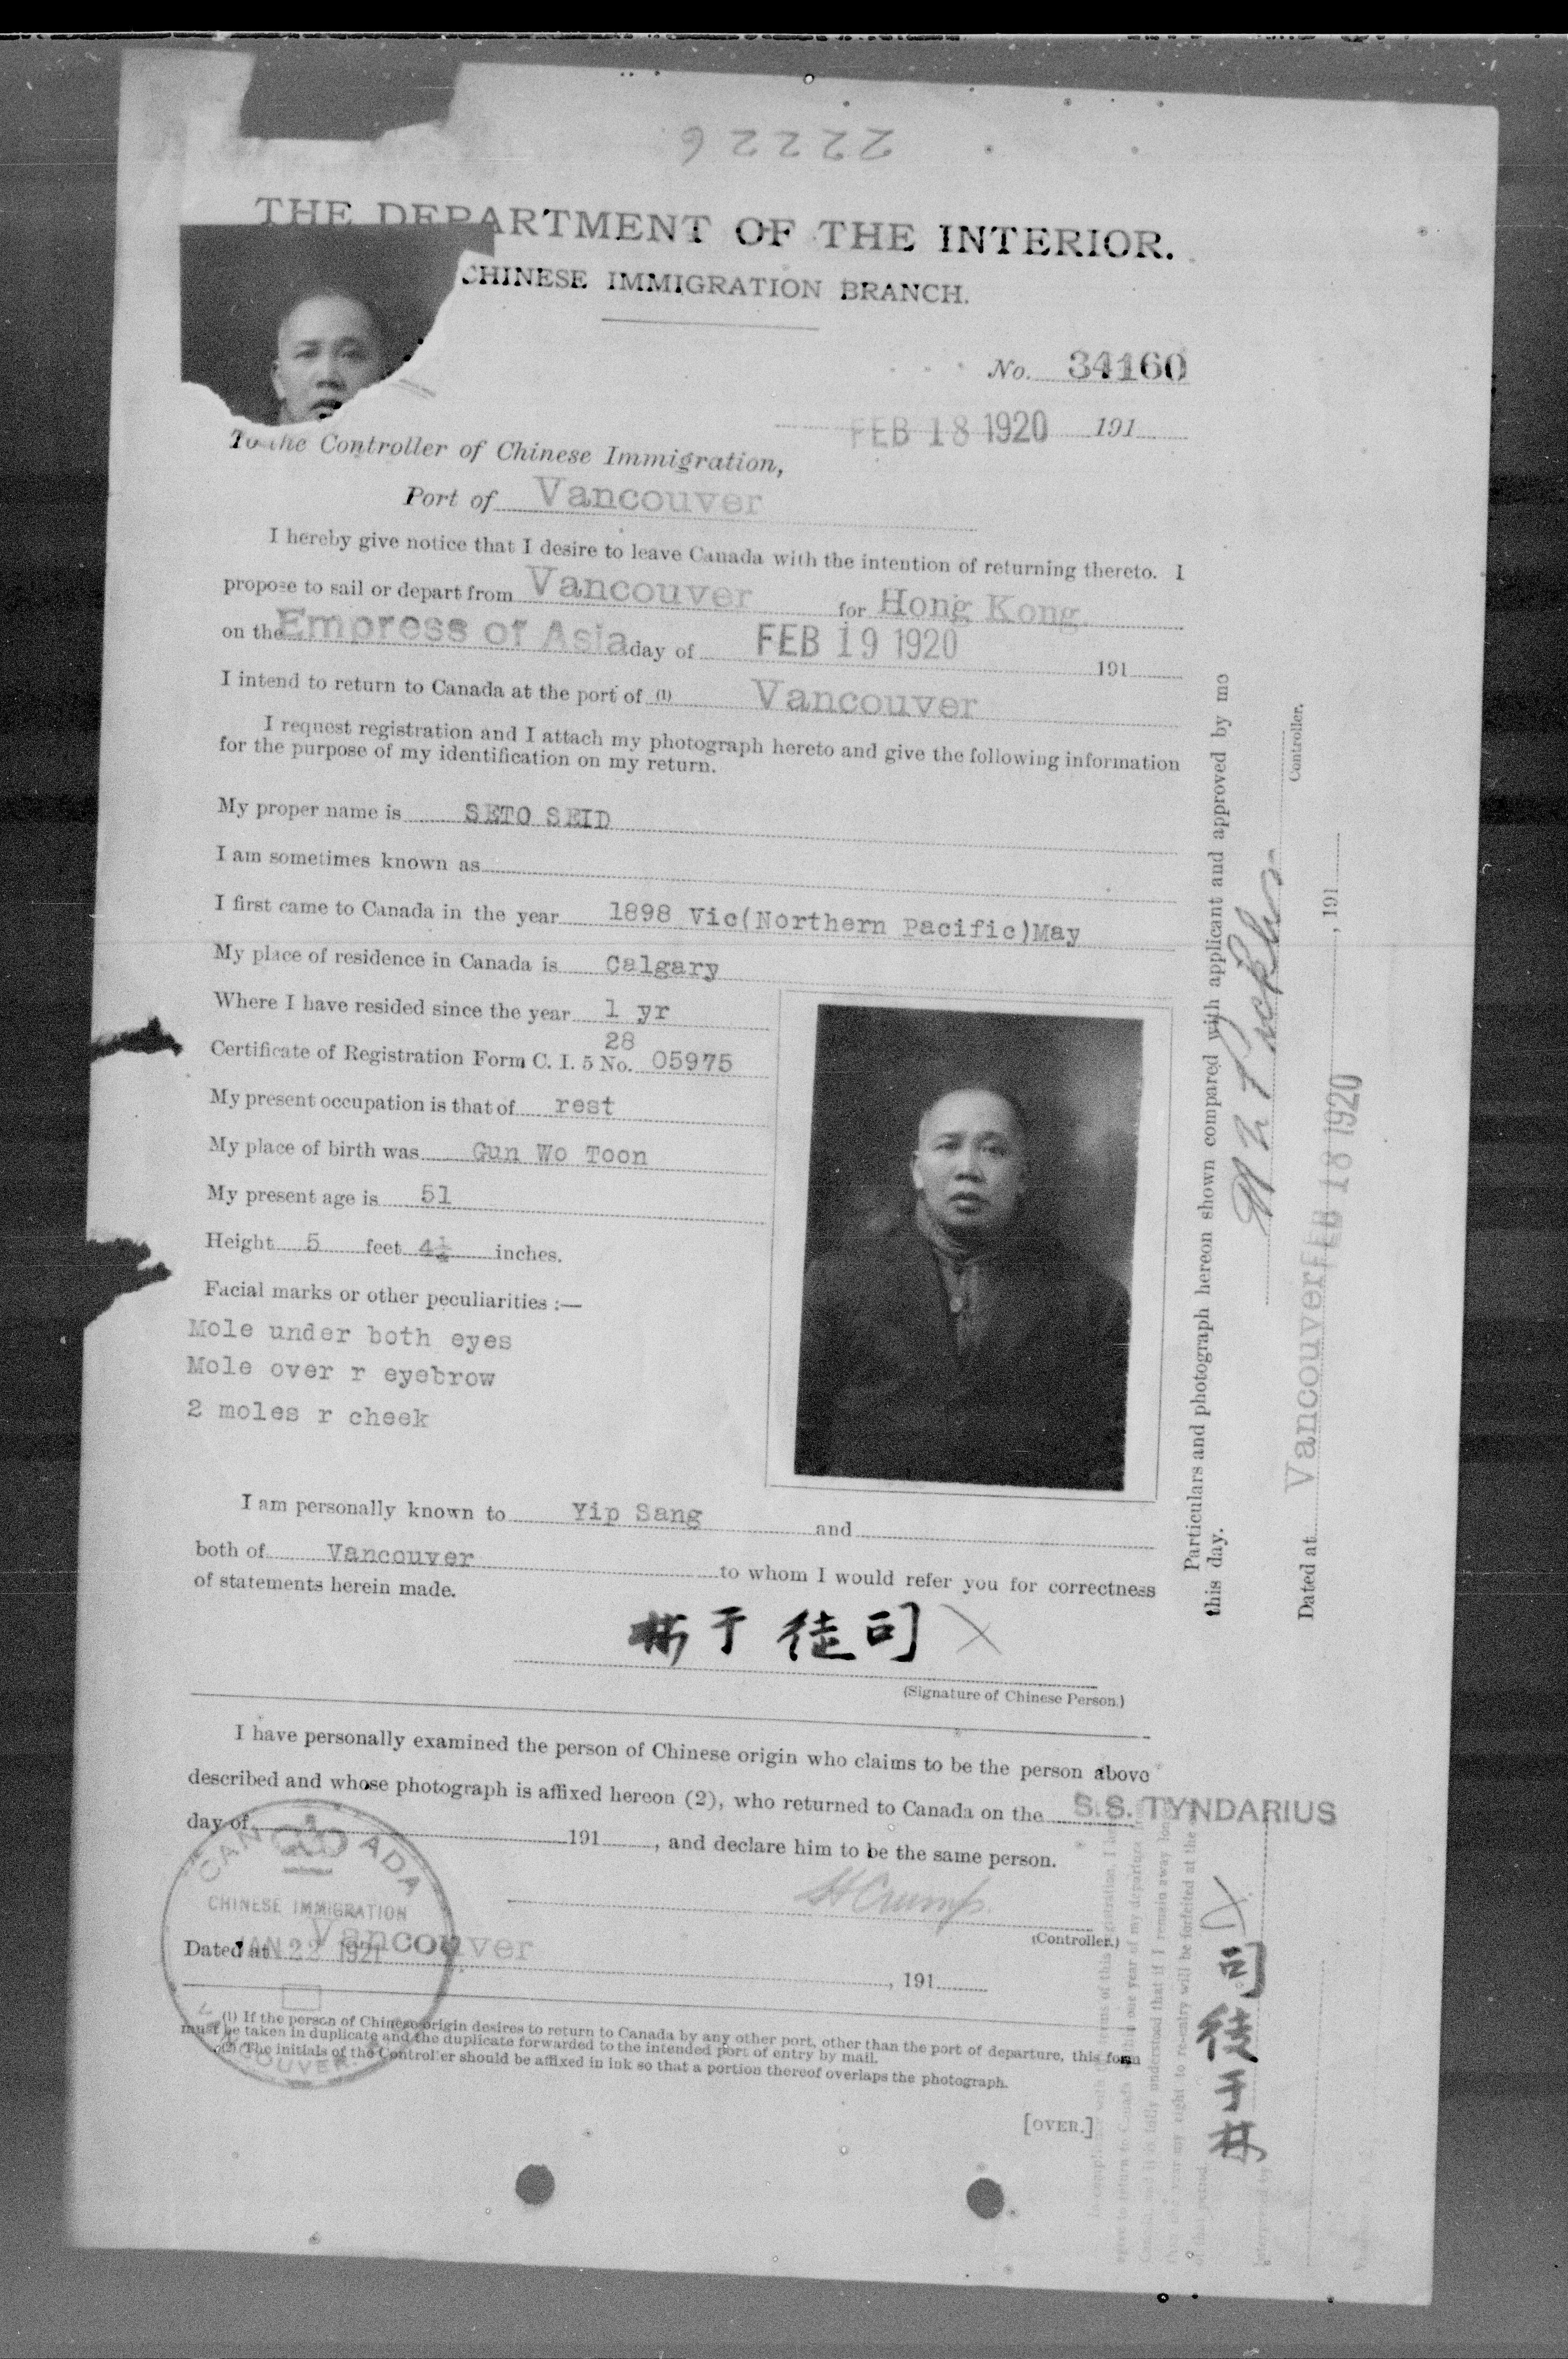 22226
THE DEPARTMENT OF THE INTERIOR.
CHINESE IMMIGRATION BRANCH.
No. 34160
FEB 18 1920 191
To the Controller of Chinese Immigration,
Port of Vancouver
I hereby give notice that I desire to leave Canada with the intention of returning thereto. I
propose to sail or depart from Vancouver for Hong Kong.
on the Empress of Asia day of FEB 19 1920 191
I intend to return to Canada at the port of (1) Vancouver
I request registration and I attach my photograph hereto and give the following information
for the purpose of my identification on my return.
My proper name is SETO SEID
I am sometimes known as
I first came to Canada in the year 1898 Vic(Northern Pacific)May
My place of residence in Canada is Calgary
Where I have resided since the year 1 yr
28
Certificate of Registration Form C. I. 5 No. 05975
My present occupation is that of rest
My place of birth was Gun Wo Toon
My present age is 51
Height 5 feet 4½ inches.
Facial marks or other peculiarities :—
Mole under both eyes
Mole over r eyebrow
2 moles r cheek
I am personally known to Yip Sang and
both of Vancouver to whom I would refer you for correctness
of statements herein made.
于 徒 司 X
(Signature of Chinese Person.)
I have personally examined the person of Chinese origin who claims to be the person above
described and whose photograph is affixed hereon (2), who returned to Canada on the S.S. TYNDARIUS
day of 191 , and declare him to be the same person.
(Controller.)
CANADA
CHINESE IMMIGRATION
JAN 22 1921
VANCOUVER.
Dated at Vancouver , 191
(1) If the person of Chinese origin desires to return to Canada by any other port, other than the port of departure, this form
must be taken in duplicate and the duplicate forwarded to the intended port of entry by mail.
(2) The initials of the Controller should be affixed in ink so that a portion thereof overlaps the photograph.
[OVER.]
Particulars and photograph hereon shown compared with applicant and approved by me
this day.
Controller.
Dated at Vancouver FEB 18 1920 , 191
司徒于